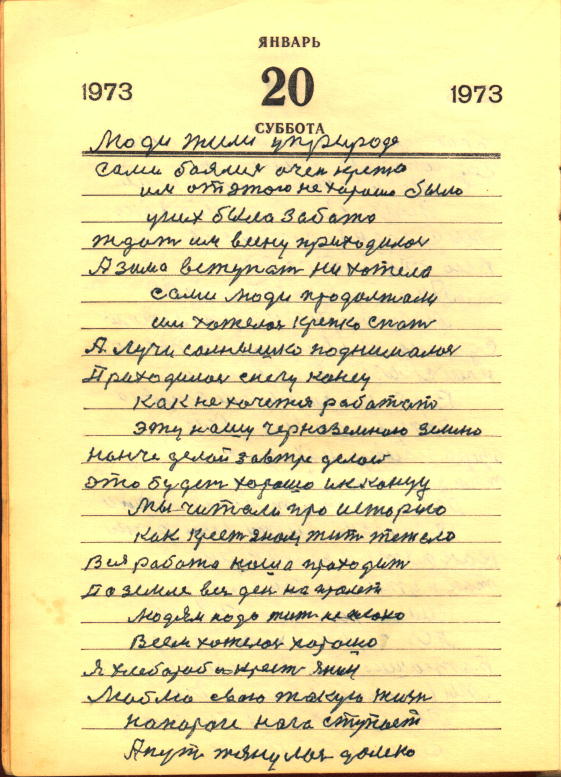 ЯНВАРЬ
1973 20 1973
СУББОТА
Люди жили уприроде
сами боялис очен крепко
им отэтого не хорошо было
уних была забато
ждат им весну приходилос
А зима вступат ни хотела
сами люди продолжали
им хотелос крепко спат
А лучи солнышко поднималос
Приходилос снегу конец
как не хочется работато
эту нашу черназемною землю
нонче делой завтре делой
это будет хорошо ик концу
Мы читали про историю
как крестяном жит тежело
Вся работа наша проходит
По земле вся ден на пролет
людям надо жит
Всем хотелос хорошо
Я хлебароб и крест янин
Люблю свою такую жизн
напороге нога ступает
Апут тянулос далеко